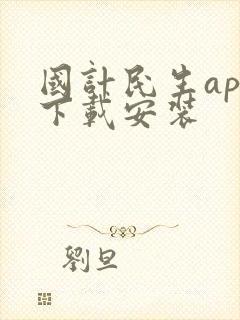 國計民生ap
下載安裝
劉旦